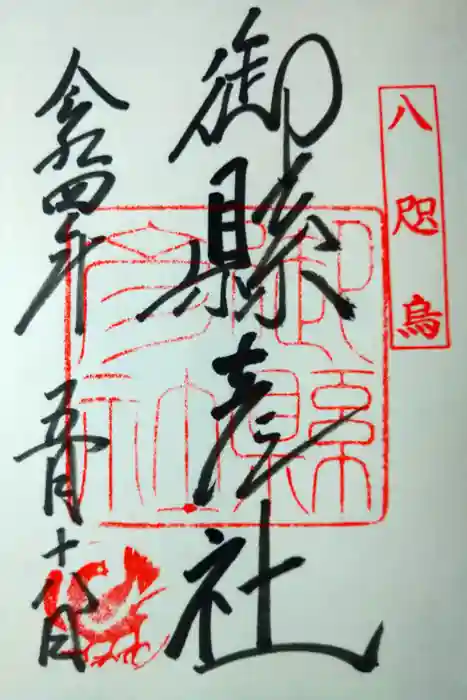 八咫烏
御縣彦社
令和四年
五月十八日